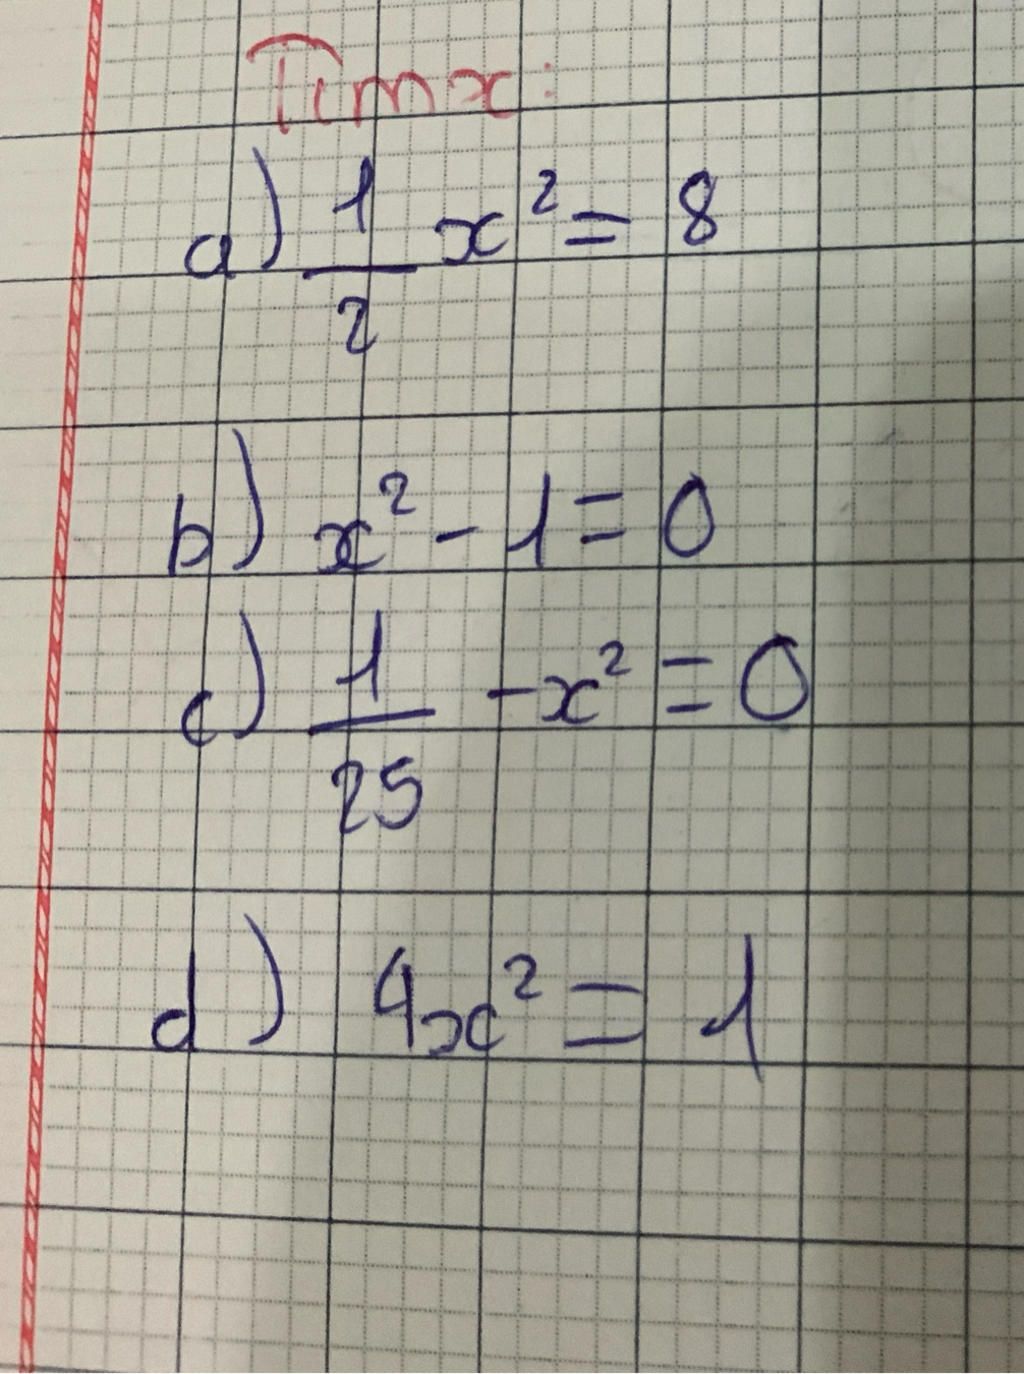 Tìm x:
a) 1/2 x² = 8
b) x² - 1 = 0
c) 1/25 - x² = 0
d) 4x² = 1